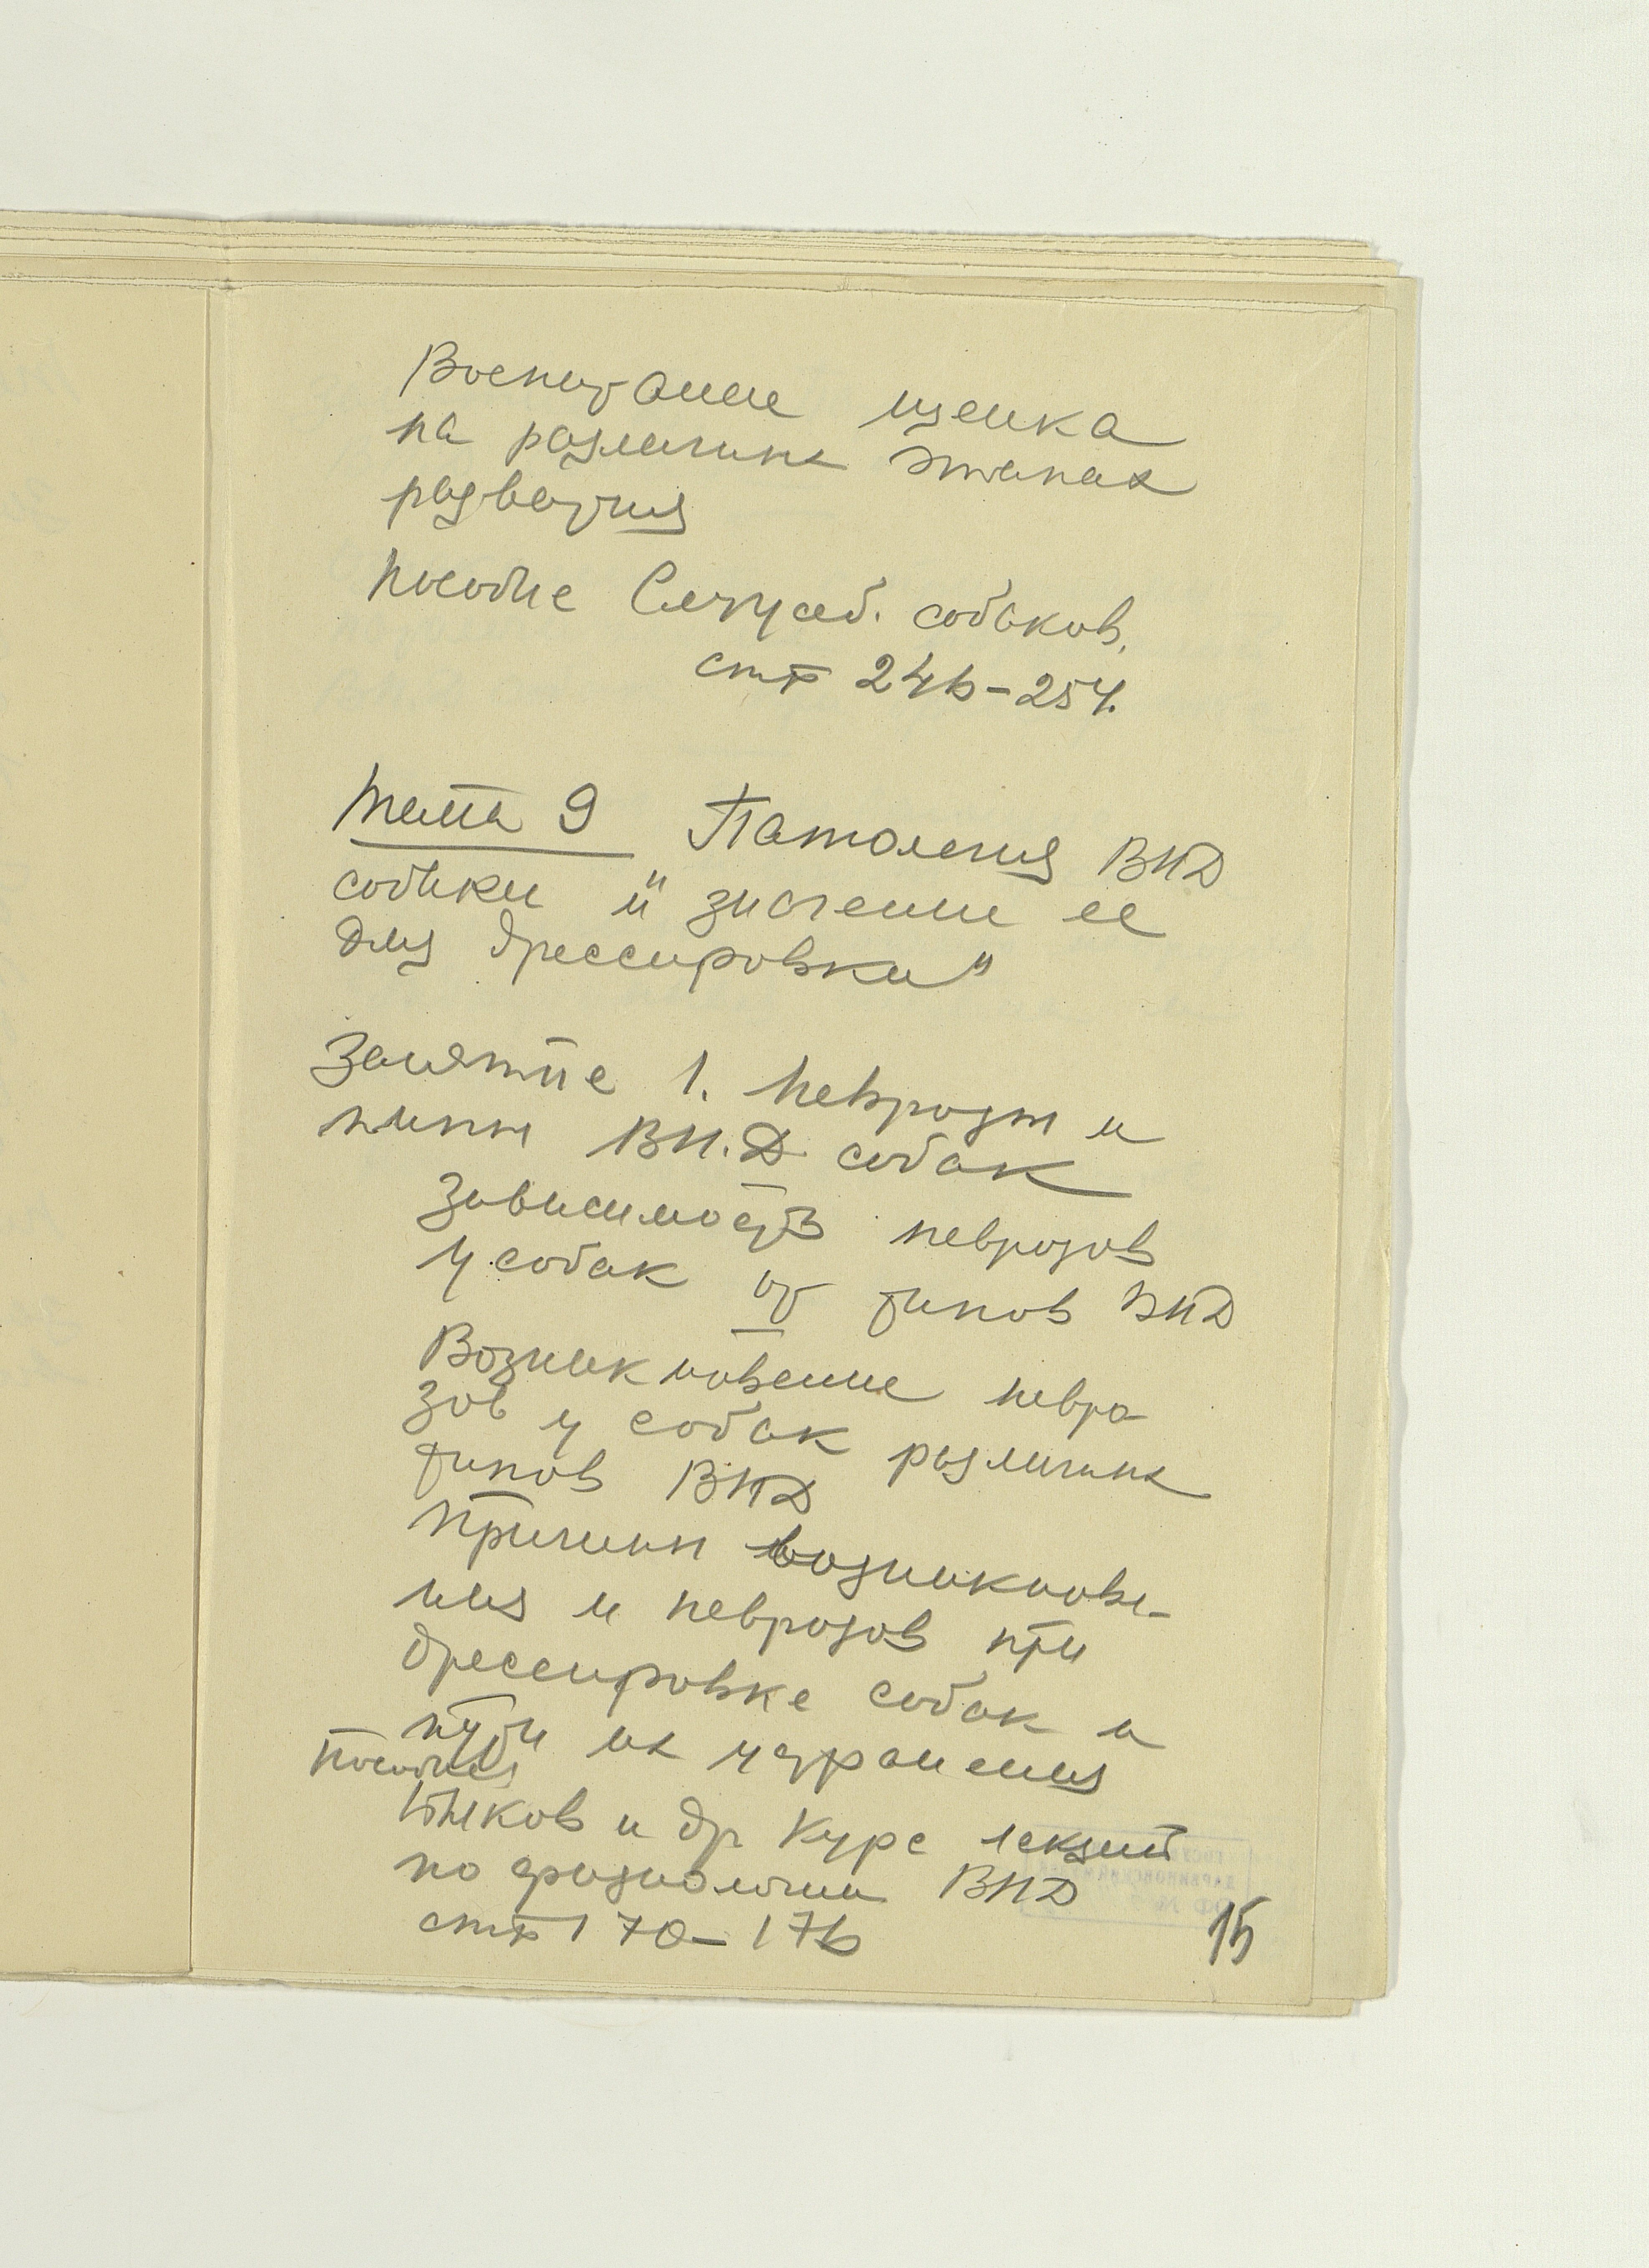 Воспитание щенка
на различных этапах
развития
Пособие Служеб. собаков.
стр 246-254.
Тема 9 Патология ВНД
собаки и "значение ее
для дрессировки"
Занятие 1. Неврозы и
типы ВН.Д собак
Зависимость неврозов
у собак от типов ВНД
Возникновение невро
зов у собак различных
типов ВНД
Причины возникнове-
ния и неврозов при
дрессировке собак и
пути их устранения
Пособия
и др Курс лекций
по физиологии ВНД
стр 170-176
15